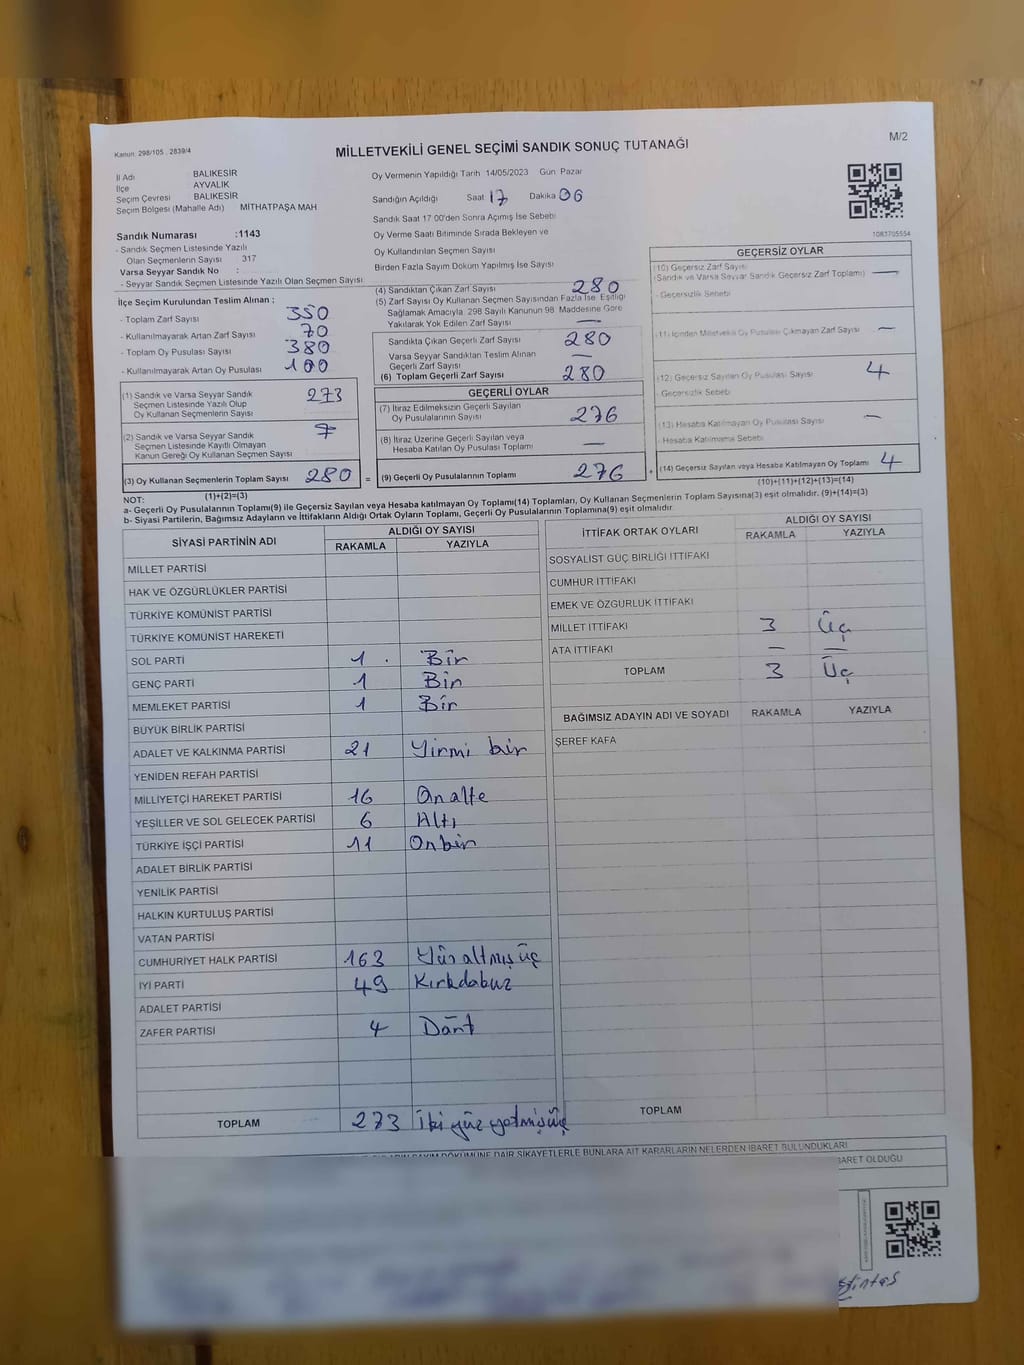 Kanun: 298/105 , 2839/4
MİLLETVEKİLİ GENEL SEÇİMİ SANDIK SONUÇ TUTANAĞI
M/2
İl Adı BALIKESİR
İlçe AYVALIK
Seçim Çevresi BALIKESİR
Seçim Bölgesi (Mahalle Adı) MİTHATPAŞA MAH
Sandık Numarası :1143
- Sandık Seçmen Listesinde Yazılı
Olan Seçmenlerin Sayısı 317
Varsa Seyyar Sandık No :
- Seyyar Sandık Seçmen Listesinde Yazılı Olan Seçmen Sayısı
İlçe Seçim Kurulundan Teslim Alınan :
- Toplam Zarf Sayısı 350
- Kullanılmayarak Artan Zarf Sayısı 70
- Toplam Oy Pusulası Sayısı 380
- Kullanılmayarak Artan Oy Pusulası 100
(1) Sandık ve Varsa Seyyar Sandık 273
Seçmen Listesinde Yazılı Olup
Oy Kullanan Seçmenlerin Sayısı
(2) Sandık ve Varsa Seyyar Sandık 7
Seçmen Listesinde Kayıtlı Olmayan
Kanun Gereği Oy Kullanan Seçmen Sayısı
(3) Oy Kullanan Seçmenlerin Toplam Sayısı 280 =
(1)+(2)=(3)
Oy Vermenin Yapıldığı Tarih 14/05/2023 Gün Pazar
Sandığın Açıldığı Saat 17 Dakika 06
Sandık Saat 17:00'den Sonra Açılmış İse Sebebi
Oy Verme Saati Bitiminde Sırada Bekleyen ve
Oy Kullandırılan Seçmen Sayısı
Birden Fazla Sayım Döküm Yapılmış İse Sayısı
(4) Sandıktan Çıkan Zarf Sayısı 280
(5) Zarf Sayısı Oy Kullanan Seçmen Sayısından Fazla İse, Eşitliği
Sağlamak Amacıyla, 298 Sayılı Kanunun 98. Maddesine Göre
Yakılarak Yok Edilen Zarf Sayısı —
Sandıkta Çıkan Geçerli Zarf Sayısı 280
Varsa Seyyar Sandıktan Teslim Alınan
Geçerli Zarf Sayısı —
(6) Toplam Geçerli Zarf Sayısı 280
GEÇERLİ OYLAR
(7) İtiraz Edilmeksizin Geçerli Sayılan
Oy Pusulalarının Sayısı 276
(8) İtiraz Üzerine Geçerli Sayılan veya
Hesaba Katılan Oy Pusulası Toplamı —
(9) Geçerli Oy Pusulalarının Toplamı 276 +
1083705554
GEÇERSİZ OYLAR
(10) Geçersiz Zarf Sayısı —
(Sandık ve Varsa Seyyar Sandık Geçersiz Zarf Toplamı)
- Geçersizlik Sebebi
(11) İçinden Milletvekili Oy Pusulası Çıkmayan Zarf Sayısı —
(12) Geçersiz Sayılan Oy Pusulası Sayısı 4
- Geçersizlik Sebebi
(13) Hesaba Katılmayan Oy Pusulası Sayısı —
- Hesaba Katılmama Sebebi
(14) Geçersiz Sayılan veya Hesaba Katılmayan Oy Toplamı 4
(10)+(11)+(12)+(13)=(14)
NOT:
a- Geçerli Oy Pusulalarının Toplamı(9) ile Geçersiz Sayılan veya Hesaba katılmayan Oy Toplamı(14) Toplamları, Oy Kullanan Seçmenlerin Toplam Sayısına(3) eşit olmalıdır. (9)+(14)=(3)
b- Siyasi Partilerin, Bağımsız Adayların ve İttifakların Aldığı Ortak Oyların Toplamı, Geçerli Oy Pusulalarının Toplamına(9) eşit olmalıdır
SİYASİ PARTİNİN ADI ALDIĞI OY SAYISI
RAKAMLA YAZIYLA
MİLLET PARTİSİ
HAK VE ÖZGÜRLÜKLER PARTİSİ
TÜRKİYE KOMÜNİST PARTİSİ
TÜRKİYE KOMÜNİST HAREKETİ
SOL PARTİ 1 Bir
GENÇ PARTİ 1 Bir
MEMLEKET PARTİSİ 1 Bir
BÜYÜK BİRLİK PARTİSİ
ADALET VE KALKINMA PARTİSİ 21 Yirmi bir
YENİDEN REFAH PARTİSİ
MİLLİYETÇİ HAREKET PARTİSİ 16 Onaltı
YEŞİLLER VE SOL GELECEK PARTİSİ 6 Altı
TÜRKİYE İŞÇİ PARTİSİ 11 Onbir
ADALET BİRLİK PARTİSİ
YENİLİK PARTİSİ
HALKIN KURTULUŞ PARTİSİ
VATAN PARTİSİ
CUMHURİYET HALK PARTİSİ 163 Yüz altmış üç
İYİ PARTİ 49 Kırkdokuz
ADALET PARTİSİ
ZAFER PARTİSİ 4 Dört
TOPLAM 273 İki yüz yetmiş üç
İTTİFAK ORTAK OYLARI ALDIĞI OY SAYISI
RAKAMLA YAZIYLA
SOSYALİST GÜÇ BİRLİĞİ İTTİFAKI
CUMHUR İTTİFAKI
EMEK VE ÖZGÜRLÜK İTTİFAKI
MİLLET İTTİFAKI 3 Üç
ATA İTTİFAKI — —
TOPLAM 3 Üç
BAĞIMSIZ ADAYIN ADI VE SOYADI RAKAMLA YAZIYLA
ŞEREF KAFA
TOPLAM
DÖKÜMÜNE DAİR ŞİKAYETLERLE BUNLARA AİT KARARLARIN NELERDEN İBARET BULUNDUKLARI
İBARET OLDUĞU